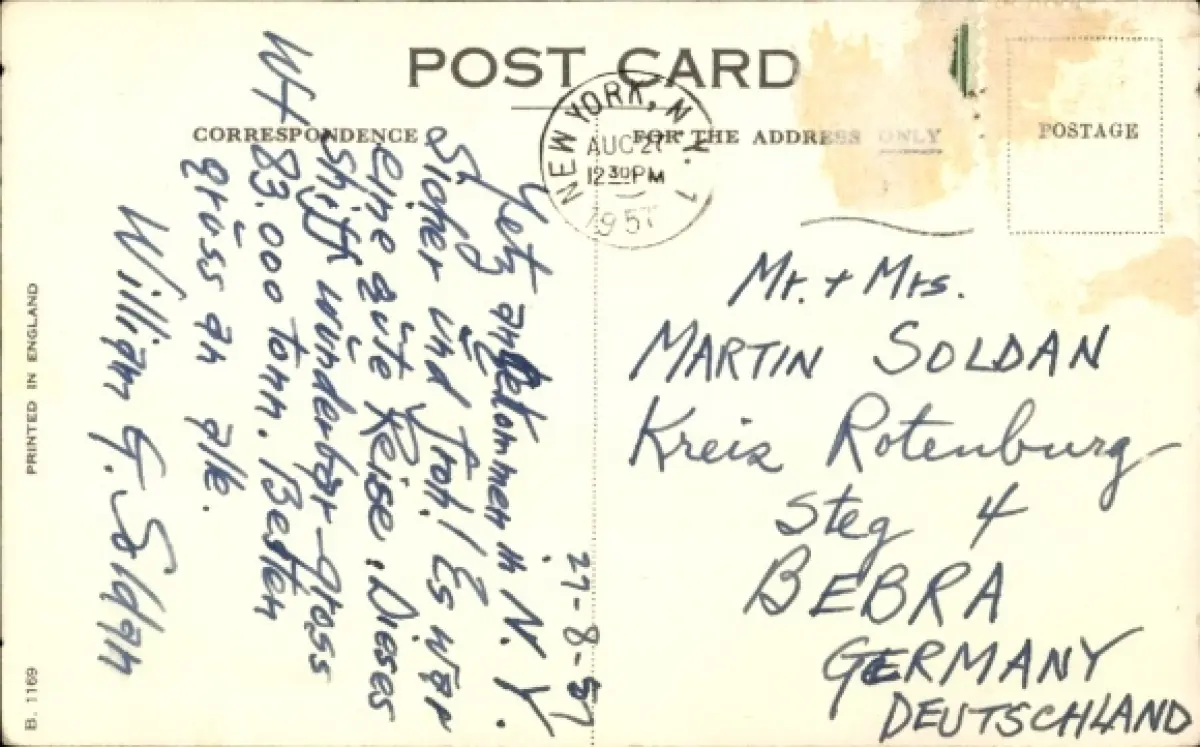 POST CARD
CORRESPONDENCE
FOR THE ADDRESS ONLY
POSTAGE
NEW YORK, N.Y. 1
AUG 27
12 30 PM
1957
27-8-57
Yetz angekommen in N.Y.
Sicher und froh! Es war
eine gute Reise. Dieses
Shiff wunderbar-gross
Wt 83.000 tonn. Besten
grüss an alle.
William G. Soldan
Mr. + Mrs.
MARTIN SOLDAN
Kreis Rotenburg
Steg 4
BEBRA
GERMANY
DEUTSCHLAND
PRINTED IN ENGLAND
B. 1169